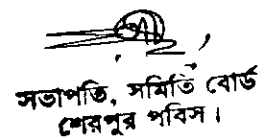 সভাপতি, সমিতি বোর্ড
শেরপুর পবিস।